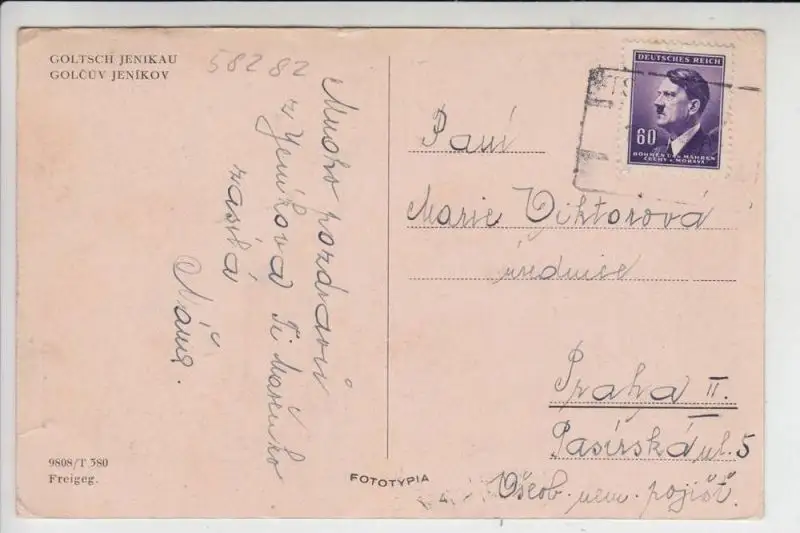 GOLTSCH JENIKAU
GOLČŮV JENÍKOV
58282
Mnoho pozdravů
z Jeníkova Ti Mařenko
zasílá
Máňa.
9808/T 380
Freigeg.
FOTOTYPIA
DEUTSCHES REICH
60
BÖHMEN U. MÄHREN
ČECHY A MORAVA
Paní
Marie Viktorová
úřednice
Praha II.
Pasířská ul. 5
Všeob. nem. pojišť.